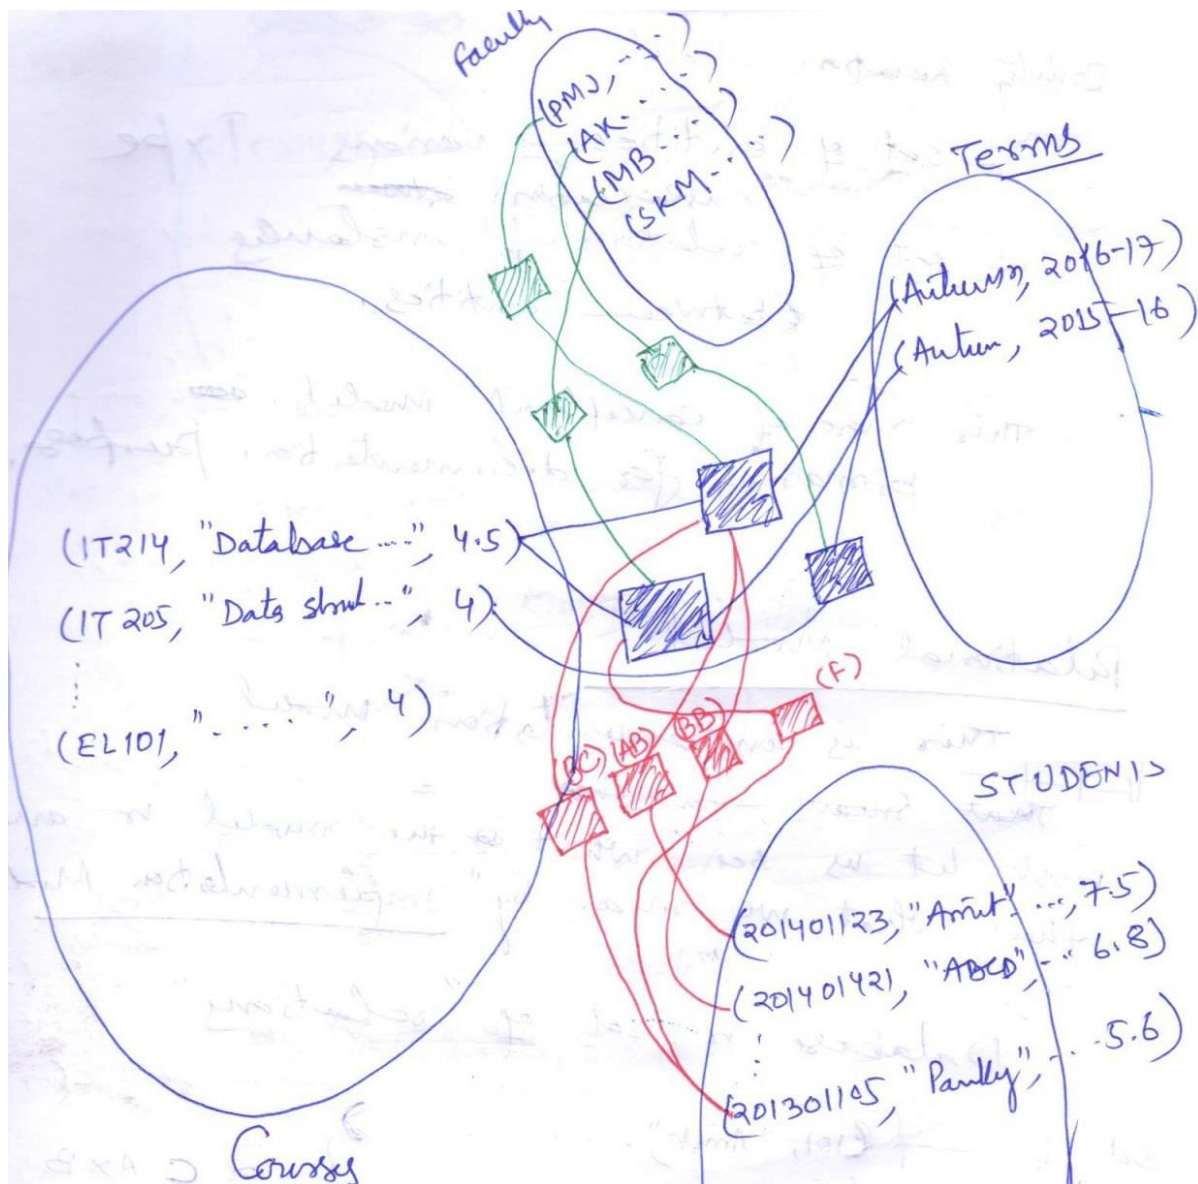 Faculty
(PMJ, ....)
(AK. ....)
(MB ...)
(SKM. ..)
Terms
(Autumn, 2016-17)
(Autum, 2015-16)
(IT214, "Database ....", 4.5)
(IT205, "Data strut..", 4)
(EL101, "......", 4)
Courses
(F)
(BC) (AB) (BB)
STUDENTS
(201401123, "Amit"..., 7.5)
(201401421, "ABCD", .. 6.8)
(201301105, ... 5.6)